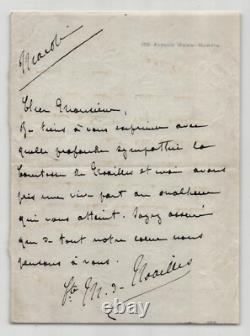 Mardi
Cher Monsieur,
Je tiens à vous exprimer avec
quelle profonde sympathie la
Comtesse de Noailles et moi avons
pris une vive part au malheur
qui vous atteint. Soyez assuré
que de tout notre cœur nous
pensons à vous.
M. de Noailles
© themusicgoat.com